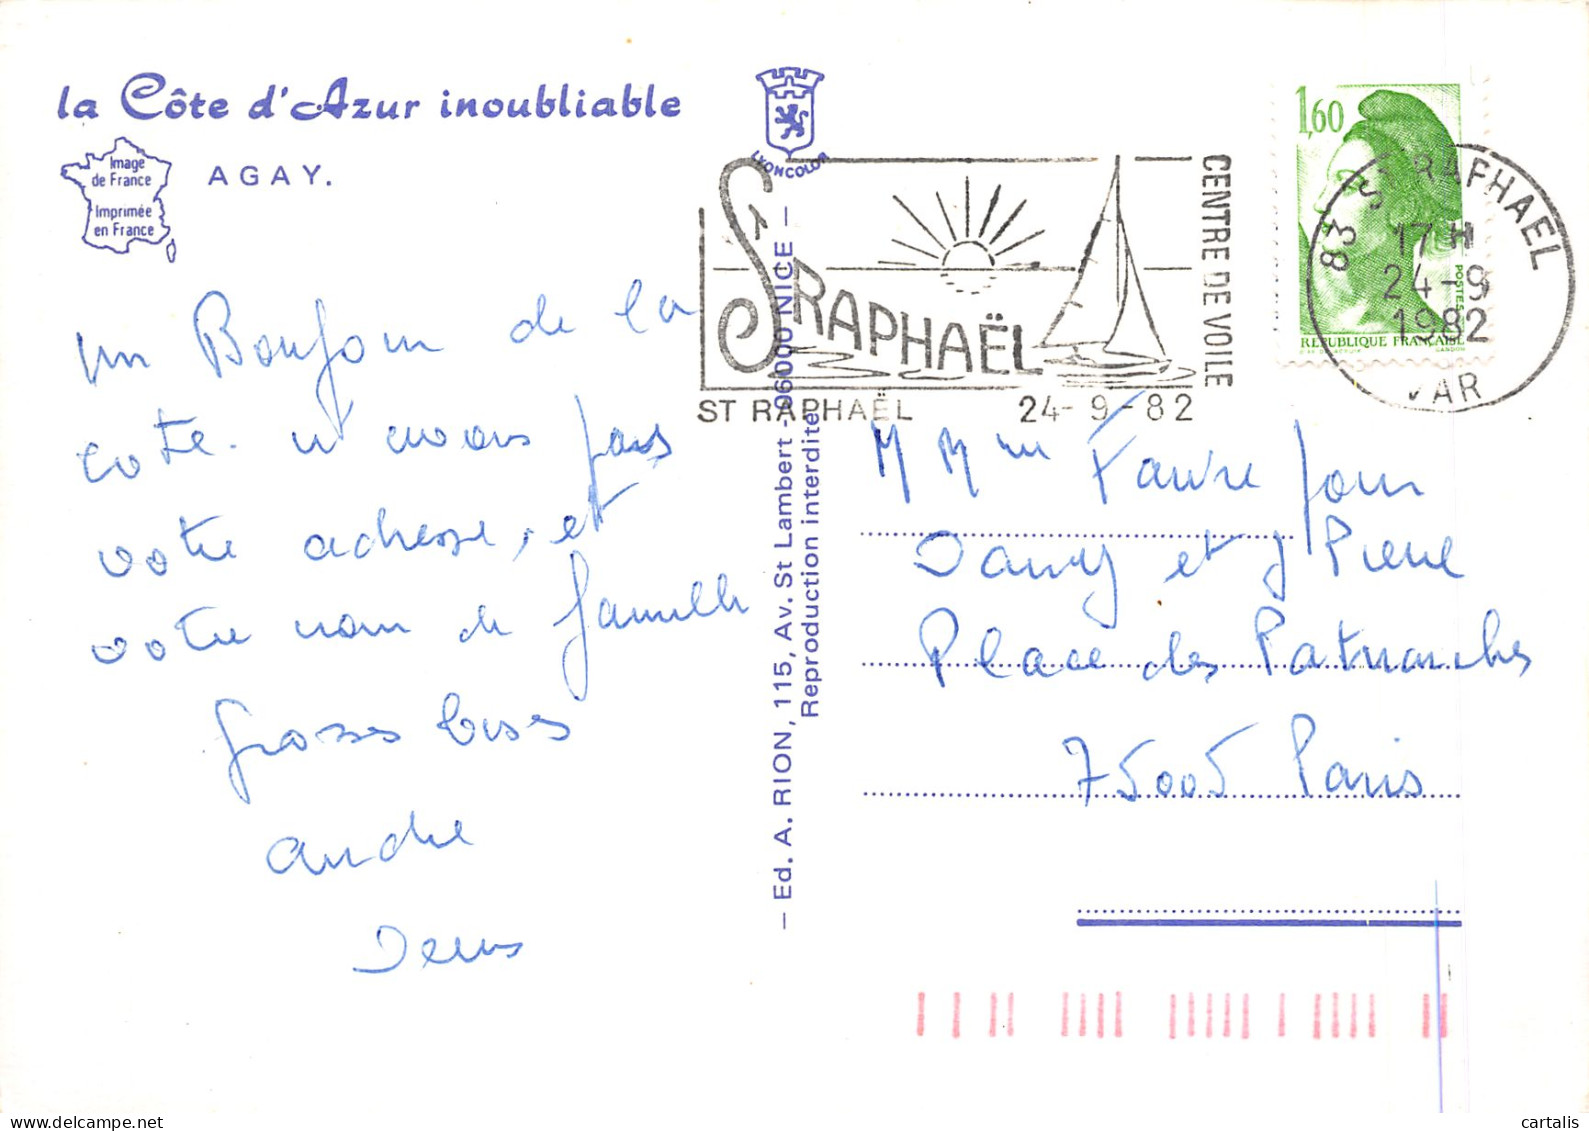 la Côte d'Azur inoubliable
Image
de France
Imprimée
en France
AGAY.
un Bonjour de la
cote. n'avons pas
votre adresse, et
votre nom de famille
grosses bises
André
Denis
LYONCOLOR
— Ed. A. RION, 115, Av. St Lambert - 06000 NICE —
Reproduction interdite
ST RAPHAËL
CENTRE DE VOILE
ST RAPHAËL 24-9-82
1,60
POSTES
REPUBLIQUE FRANCAISE
83 ST RAPHAEL
17 H
24-9
1982
VAR
M Mme Favre pour
Dany et J Pierre
Place des Patriarches
75005 Paris
cartalis
https://www.delcampe.net